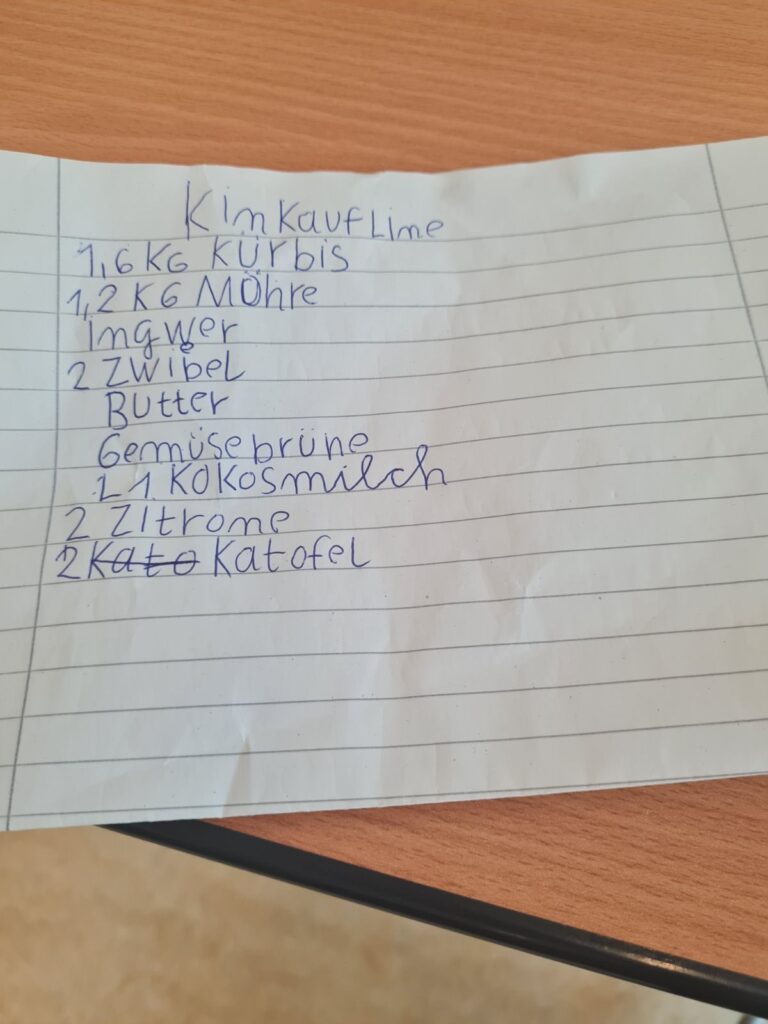 Kinkaufline
1,6 KG KÜrbis
1,2 KG MÖhre
ingwer
2 Zwibel
Butter
Gemüsebrüne
1 1 KOKosmilch
2 Zitrone
2 Kato Katofel